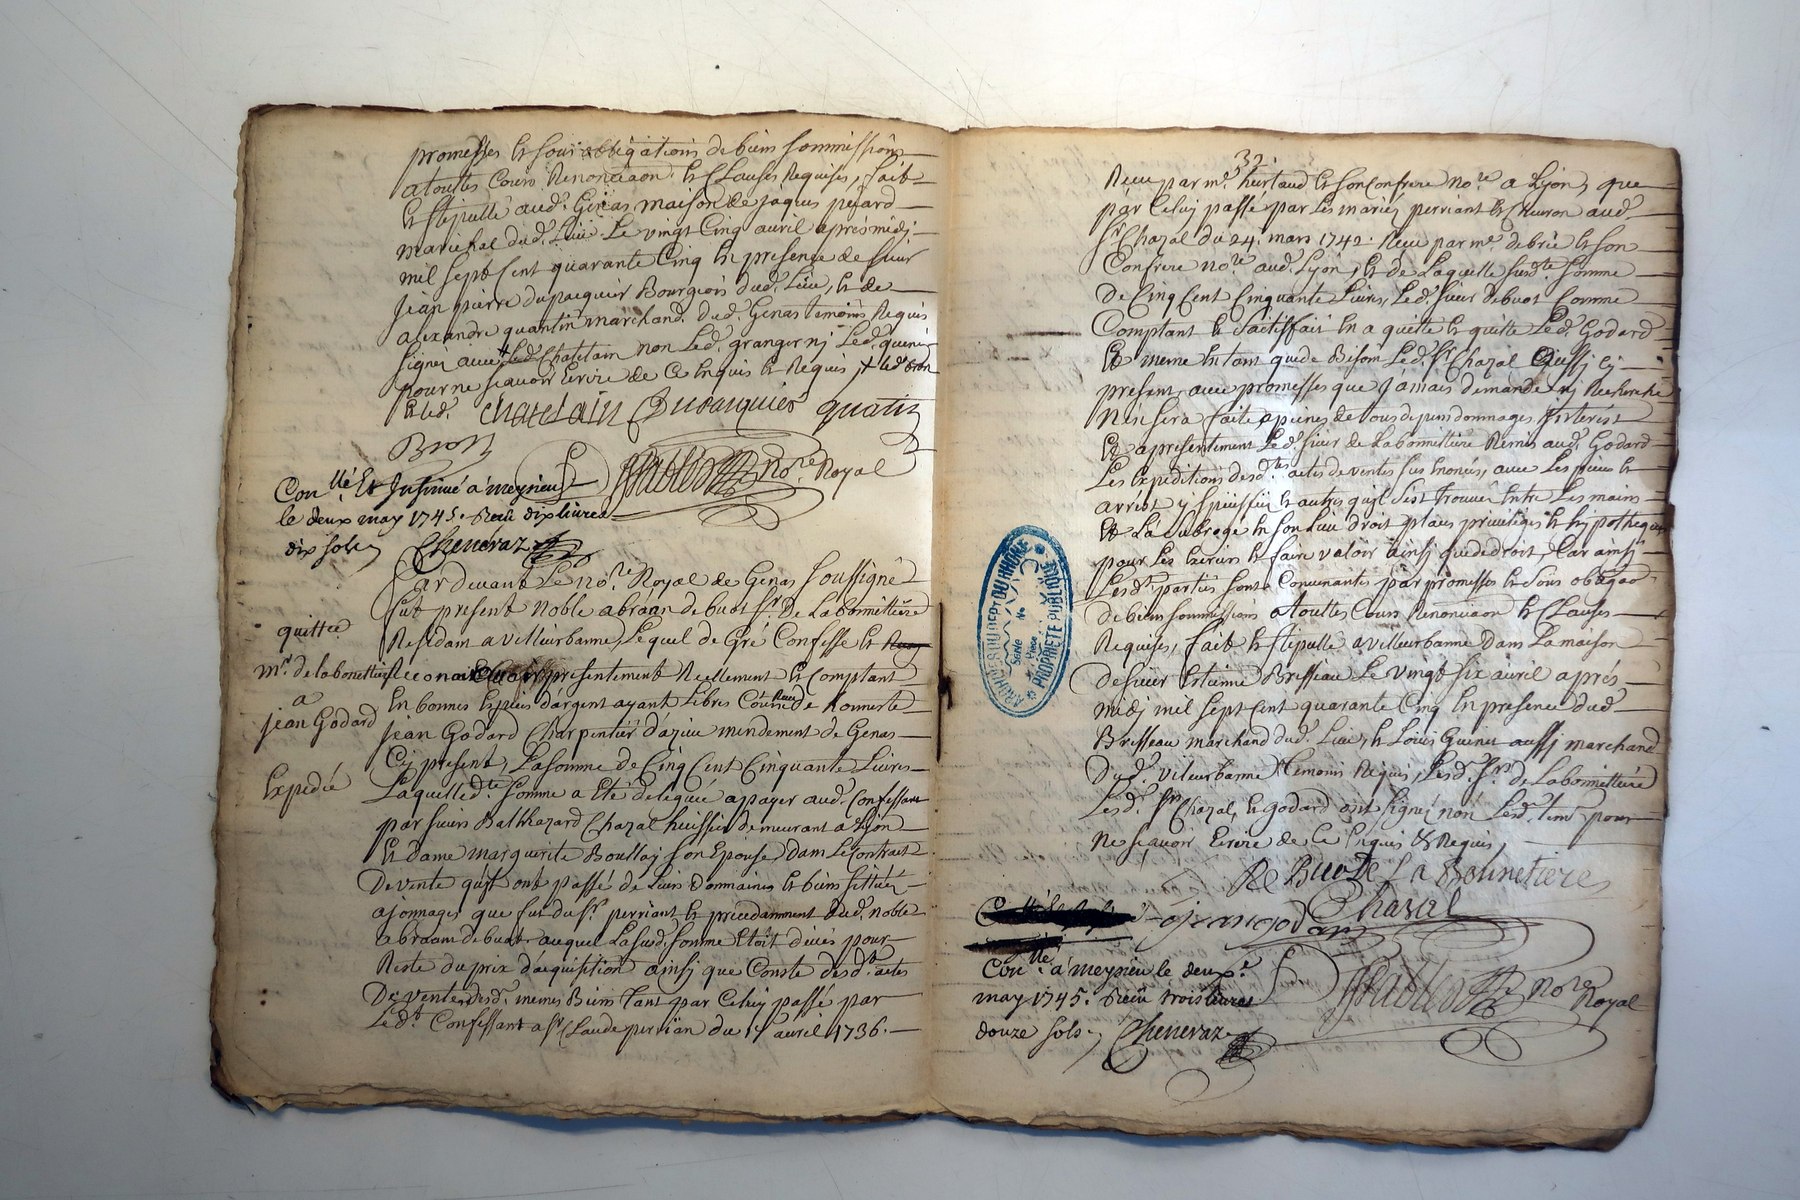 promesses et sous obligations de biens soumissions
a touttes Cours Renonciaon et Clauses Requises, fait
et stipullé aud. Genas maison de jaques pejard
marechal dud. Lieu Le vingt Cinq auril aprés midj
mil sept Cent quarante Cinq En presence de sieur
jean pierre dupacquier Bourgeois dud. Lieu, et de
alexandre quantin marchand dud. Genas temoins Requis
signez auec led. Chatelain non Led. granger nj Led.
pour ne sçauoir Ecrire de Ce Enquis et Requis, + led. bron
et led. Chatelain Dupacquier quatin
Bron
no.re Royal
Con.llé Et Insinué a meysieu
le deux may 1745. Receu dix livres
dix sols
Cheneraz
Par deuant Le no.re Royal de Genas soussigné
fut present noble abraan de buot s.r De Labonnettiere
Residam a villeurbanne, Lequel de Gré Confesse et
presentement Reellement et Comptant
En bonnes Especes d'argent ayant Libres Cours de honneste
jean Godard Charpentier d'azieu mendement de Genas
Cy present, La somme de Cinq Cent Cinquante Liures
Laquelle d.te somme a Eté deleguée a payer aud. Confessant
par sieurs Balthazard Chazal huissier demeurant a Lyon
et dame marguerite Boullay son Epouse, dans Le Contract
De vente qu'il ont passé de Leurs domaines et biens sittués
a jonnages que fut du s.r perriant et precedamment dud. noble
abraam de buot auquel La susd. somme Etoit deüe pour
Reste du prix d'acquisition ainsj que Conste desd.ts actes
De ventes desd. memes Biens tant par Celuy passé par
Led.t Confessant a s.r Claude perrian du 17 auril 1736.
quittce
m.r de labonettiere
a
jean Godard
Expedié
32.
Receu par m.e hurtaud et son Confrere no.re a Lyon, que
par Celuy passé par Les mariez perriant et Chuiron aud.
s.r Chazal du 24. mars 1742. Receu par m.e debrie et son
Confrere no.re aud. Lyon, et de Laquelle susd.te somme
De Cinq Cent Cinquante Liures, Led. sieur debuot Comme
Comptant et Satisfait En a quitté et quitte Led. Godard
Et meme En tant que de Besoin Led. s.r Chazal aussj Cy
present, auec promesses que jamais demande nj Recherche
N'en sera faite a peines de tous depens dommages Interest
Et a presentement Led. sieur de Labonnettiere Remis aud. Godard
Les Expeditions desd.tes actes de ventes sus Enoncés, auec Les
et autres qu'il s'est trouuer Entre Les mains
Et La subrogé En son Lieu droit place priuileges et hypotheques
pour Les Exercer et faire valoir ainsj que de droit, Car ainsj
Lesd. parties sont Conuenantes par promesses et sous obligao.
de biens soumissions a touttes Cours Renonciaon et Clauses
Requises, fait et stipullé a villeurbanne Dans La maison
de sieur Estienne Brisseau Le vingt six auril aprés
midj mil sept Cent quarante Cinq En presence dud.
Brisseau marchand dud. Lieu, et Louis Guenet aussj marchand
Dud. villeurbanne temoins Requis, Lesd. s.rs de Labonnettiere
Lesd. s.r Chazal, et godard ont signez non Lesd. tem. pour
Ne sçauoir Ecrire de Ce Enquis et Requis,
De Buot De La Bonnetiere
Chazal
jean godard
no.re Royal
Con.llé a meysieu le deux.e
may 1745. Receu trois livres
douze sols
Cheneraz
ARCHIVES DU DEP.T DU RHÔNE
Série No
Pièce
PROPRIÉTÉ PUBLIQUE